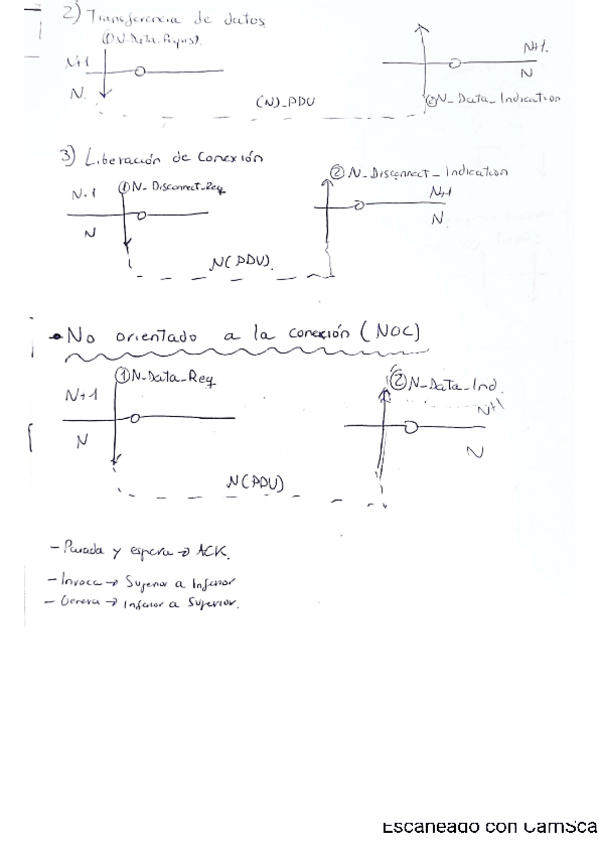 2) Transferencia de datos
① N-Data-Request).
N+1
N
(N)_PDU
N+1.
N
② N_ Data_ Indication
3) Liberación de Conexión
N-1
① N- Disconnect_Req
N
N(PDU).
② N_ Disconnect_ Indication
N+1
N.
• No orientado a la conexión (NOC)
① N-Data_Req
N+1
N
N(PDU)
② N_Data_Ind.
N+1
N
- Parada y espera → ACK.
- Invoca → Superior a Inferior
- Genera → Inferior a Superior.
Escaneado con CamSca